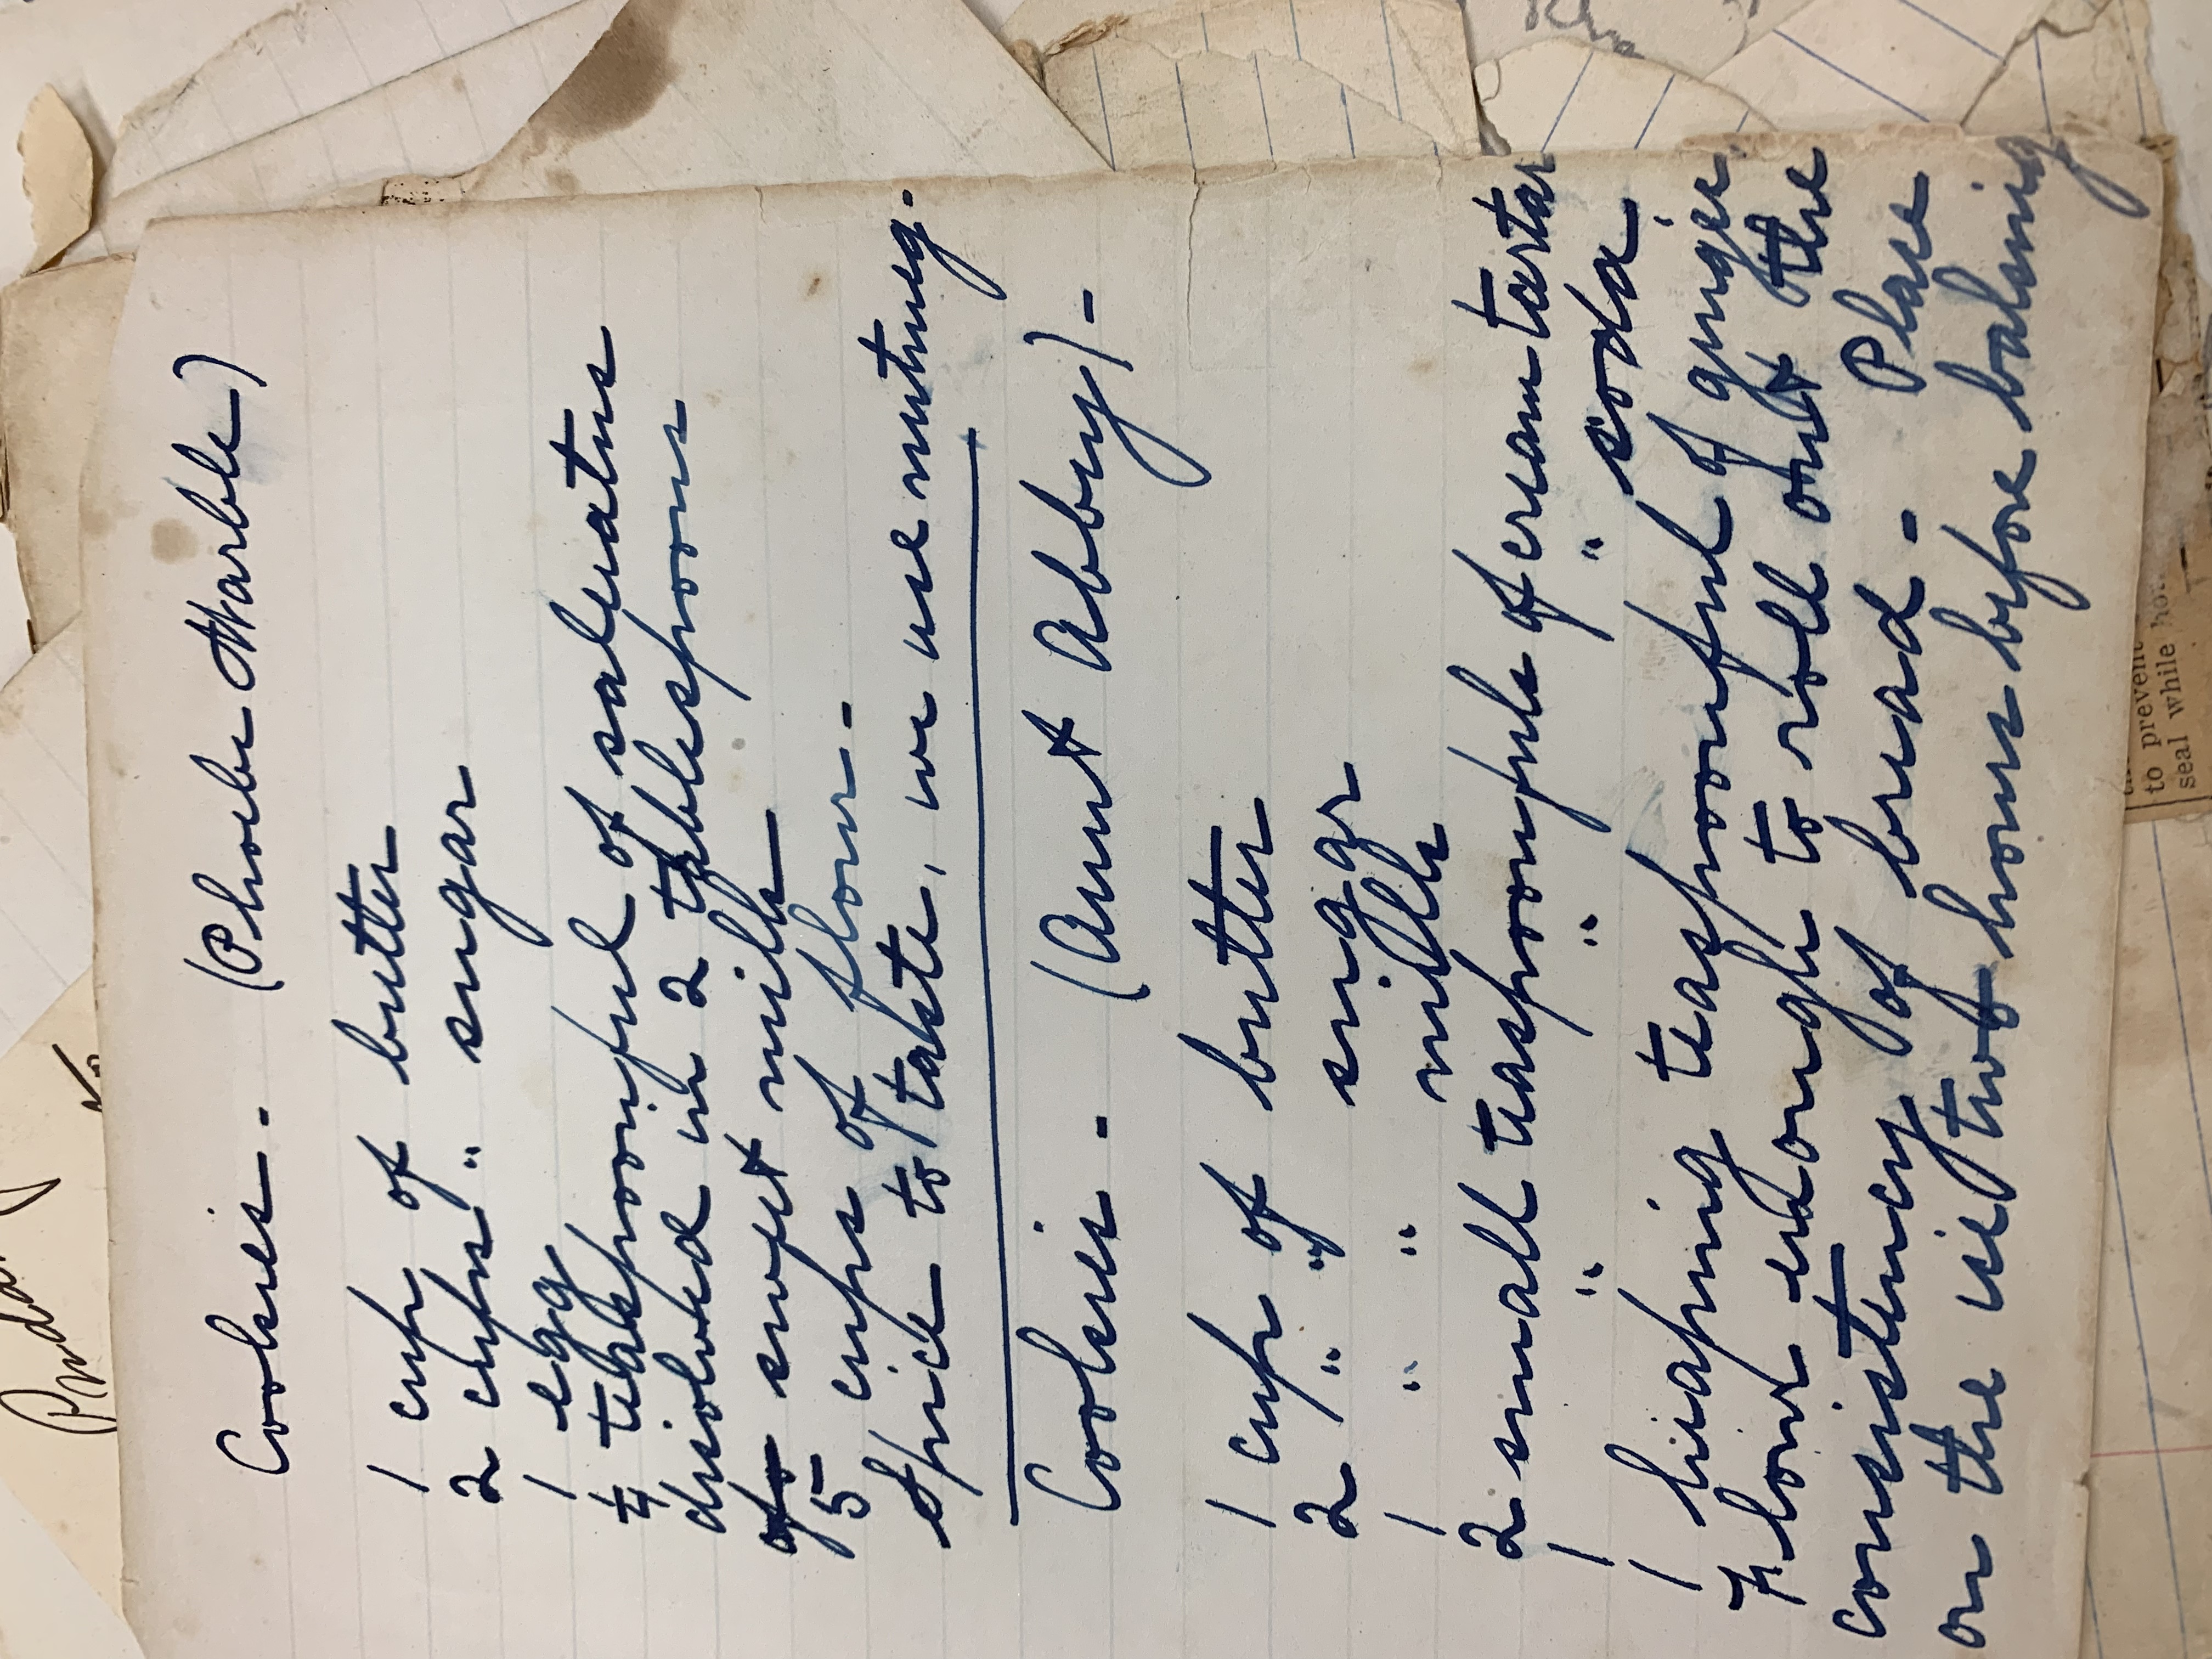 Cookies - (Phoebe Marble)
1 cup of butter
2 cups " sugar
1 egg
1/4 teaspoonful of saleratus
disolved in 2 tablespoons
of sweet milk
5 cups of flour -
Spice to taste, we use nutmeg -
Cookies - (Aunt Abbey) -
1 cup of butter
2 " " sugar
1 " " milk
2 small teaspoonfuls of cream tartar
1 " " " soda
1 heaping teaspoonful of ginger.
Flour enough to roll out the
consistency of bread - Place
on the ice two hours before baking
to prevent
seal while